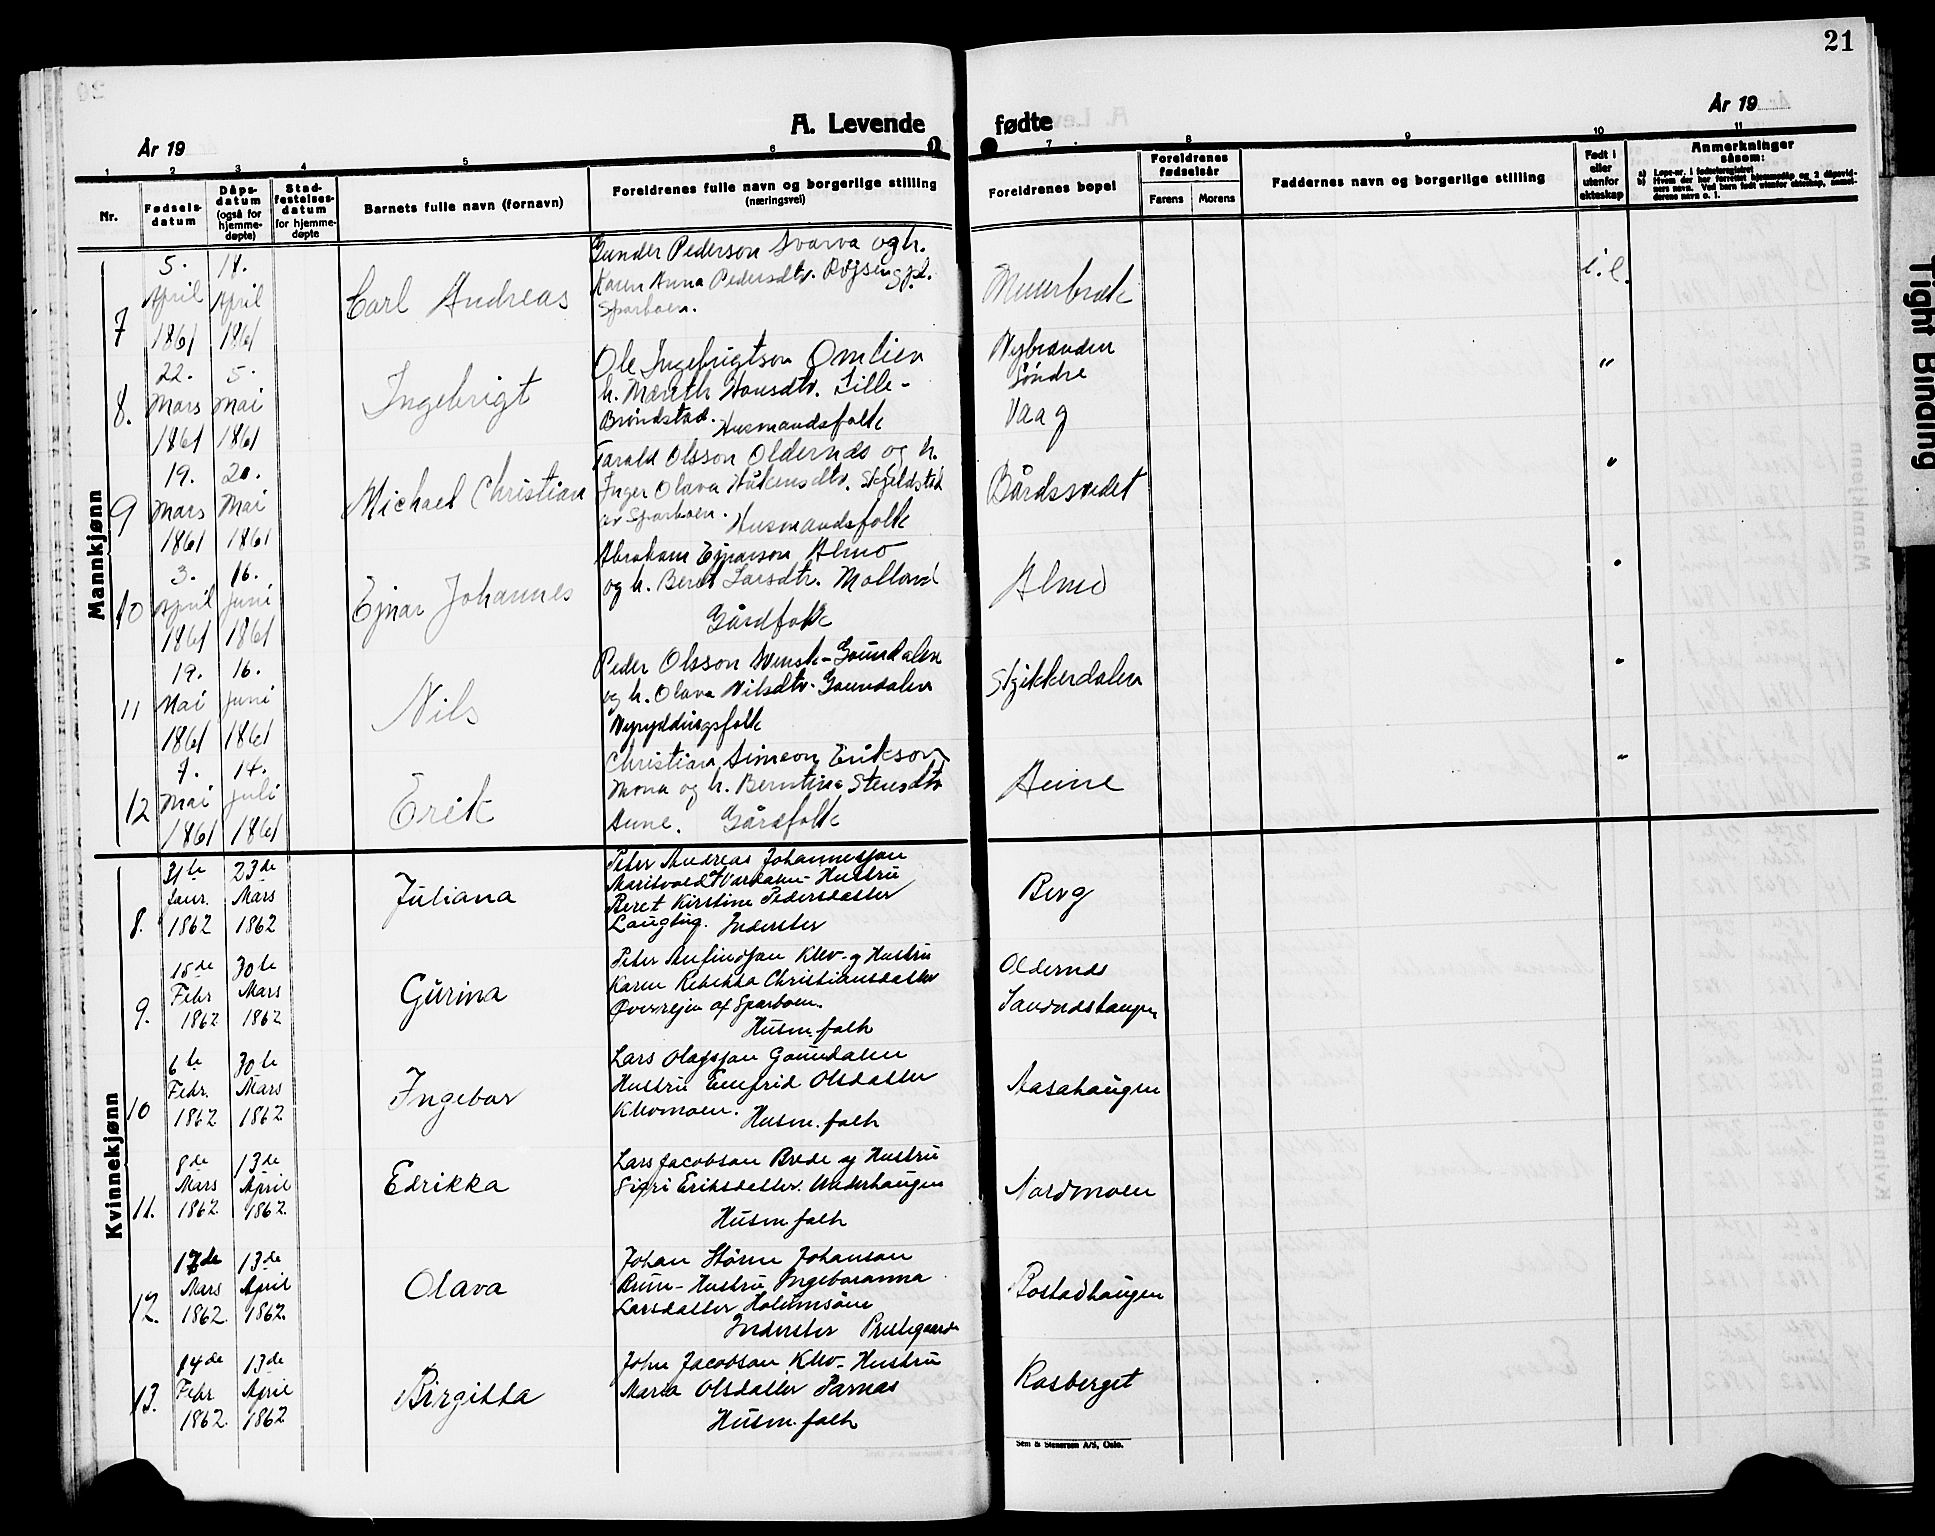 21
A. Levende fødte
År 19
År 19
1 2 3 4 5 6 7 8 9 10 11
Nr.
Fødsels-
datum
Dåps-
datum
(også for
hjemme-
døpte)
Stad-
festelses-
datum
for hjemme-
døpte
Barnets fulle navn (fornavn)
Foreldrenes fulle navn og borgerlige stilling
(næringsvei)
Foreldrenes bopel
Foreldrenes
fødselsår
Farens Morens
Faddernes navn og borgerlige stilling
Født i
eller
utenfor
ekteskap
Anmerkninger
såsom:
a) Løpe-nr. i fødselsregistret
b) Hvem der har forrettet hjemmedåp og 2 dåpsvid-
ners navn. Ved barn født utenfor ekteskap, anmel-
derens navn o. l.
Mannkjønn
7
5. April 1861
14. April 1861
Carl Andreas
Gunder Pederson Svarva og h.
Karen Anna Pedersdtr. Røjseng pl.
Sparboen.
Muurbræk
i.e.
8.
22. Mars 1861
5. Mai 1861
Ingebrigt
Ole Ingebrigtson Omlien
h. Mereth Hansdtr. Lille-
Brøndstad. Husmandsfolk
Nybranden
Søndre
Vaag
"
9
19. Mars 1861
20. Mai 1861
Michael Christian
Tarald Olsson Oldernds og h.
Inger Olava Håkensdtr. Skjeldstad
av Sparboen. Husmandsfolk
Bårdssvedet
"
10
3. April 1861
16. Juni 1861
Ejnar Johannes
Abraham Ejnarson Almo
og h. Beret Larsdtr. Molland
Gårdfolk
Almo
"
11
19. Mai 1861
16. Juni 1861
Nils
Peder Olsson Svensk-Gaundalen
og h. Olava Nilsdtr. Gaundalen
Nyryddingsfolk
Skjikkerdalen
"
12
7. Mai 1861
14. Juli 1861
Erik
Christian Simeon Erikson
Mona og h. Berntine Stensdtr
Aune. Gårdfolk
Aune
"
Kvinnekjønn
8.
31te Janr. 1862
23de Mars 1862
Juliana
Peter Andreas Johannesjan
Maritvold Værdalen- Hustru
Beret Kirstine Pedersdatter
Langtug. Inderster
Berg
9.
15de Febr 1862
30te Mars 1862
Gurina
Peter Arfindsjan Klev- og Hustru
Karen Rebekka Christiansdatter
Øverrejen af Sparboen.
Husm. folk
Oldernds
10
6te Febr. 1862
30te Mars 1862
Ingebor
Lars Olagsjan Gaundalen
Hustru Enefrid Olsdatter
Klevmoen. Husm. folk
Aasahaugen
11.
8de Mars 1862
13de April 1862
Edrikka
Lars Jacobsan Brede og Hustru
Sigri Eriksdatter. Underhaugen
Husm folk
Nordmoen
12.
17de Mars 1862
13de April 1862.
Olava
Johan Størm Johansan
Bruu- Hustru Ingeboranna
Larsdatter Holumsåne
Inderster Prestegaards
Bostadhaugen
13.
14de Febr 1862.
13de April 1862
Birgitta
John Jacobsan Klev- Hustru
Maria Olsdatter Farnes
Husm. folk
Rasberget
Sem & Stenersen A/S, Oslo.
Tight Binding